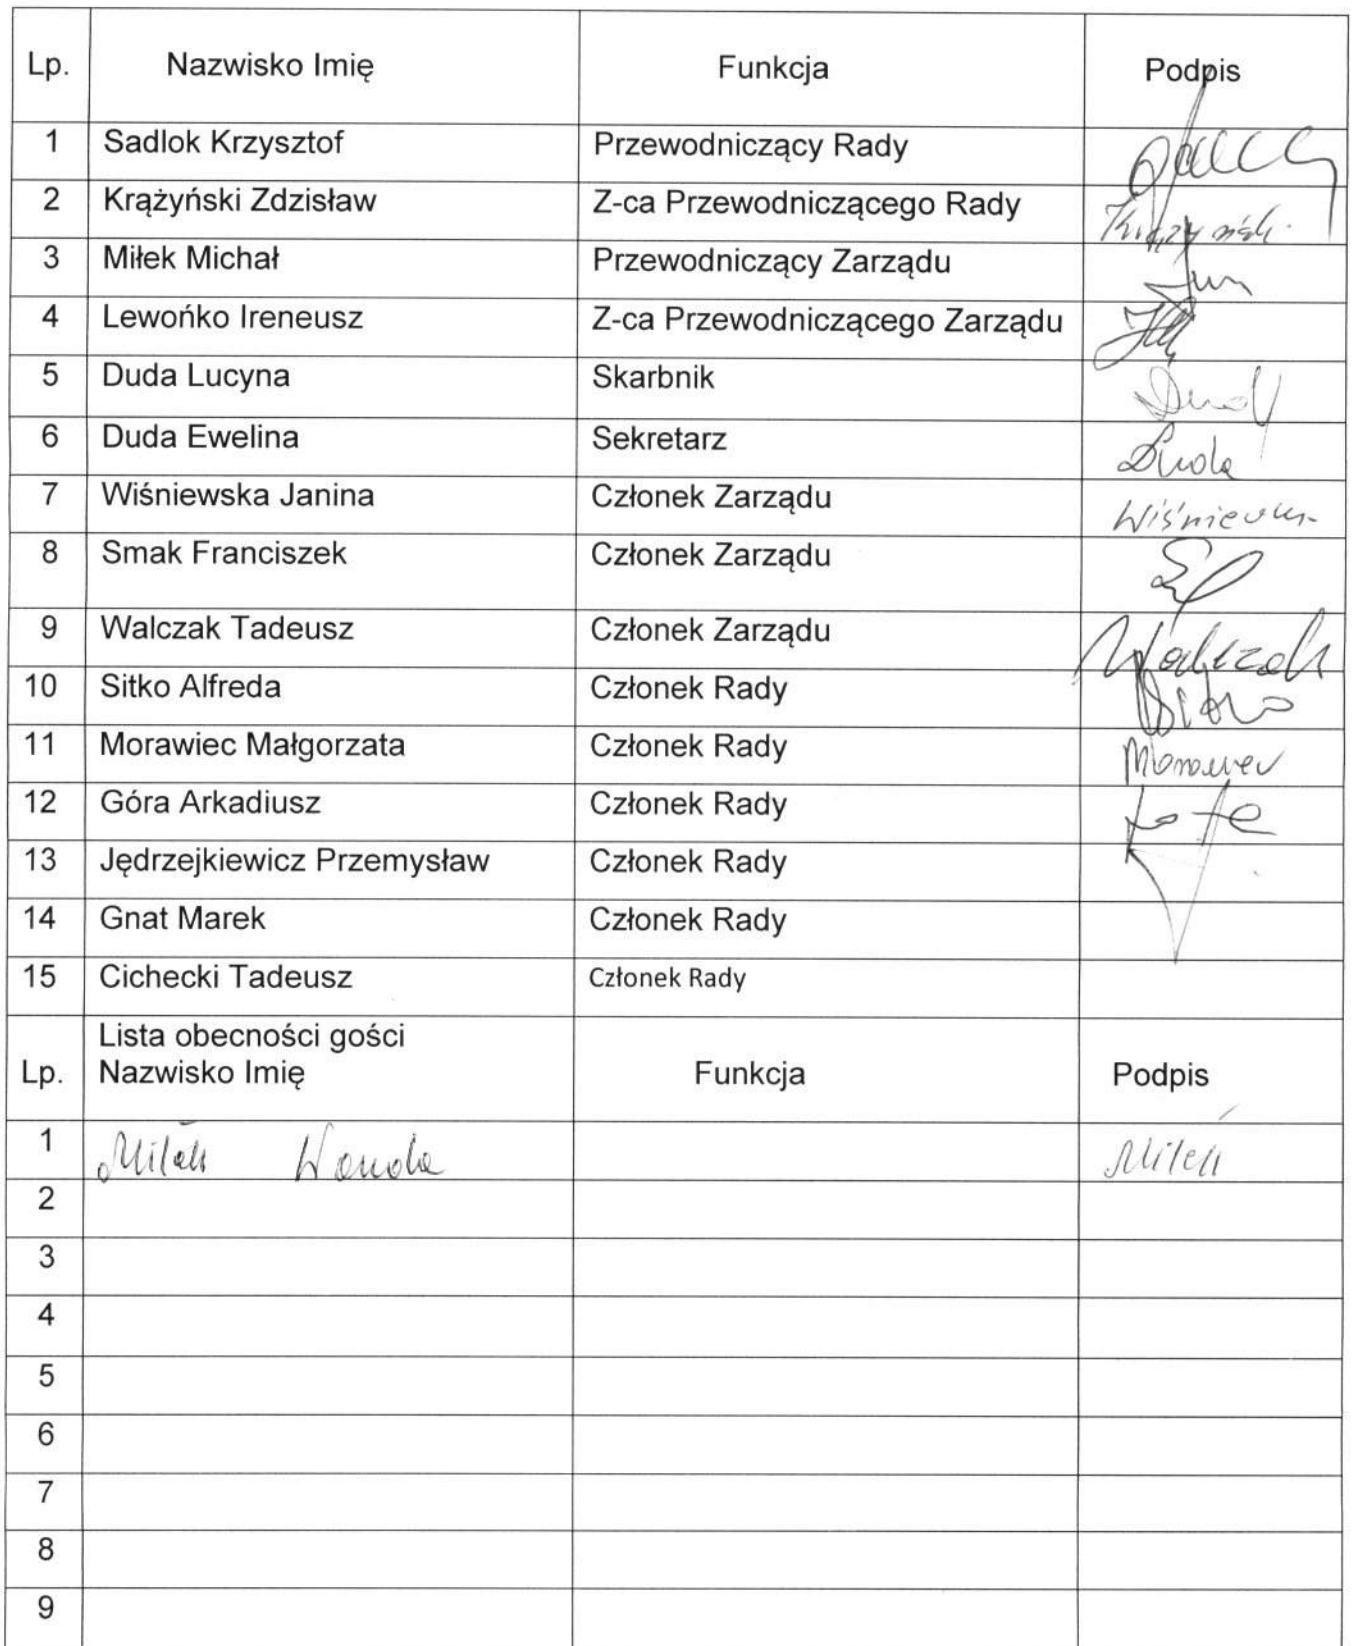 Lp. Nazwisko Imię Funkcja Podpis
1 Sadlok Krzysztof Przewodniczący Rady
2 Krążyński Zdzisław Z-ca Przewodniczącego Rady Krążyński
3 Miłek Michał Przewodniczący Zarządu
4 Lewońko Ireneusz Z-ca Przewodniczącego Zarządu
5 Duda Lucyna Skarbnik
6 Duda Ewelina Sekretarz Duda
7 Wiśniewska Janina Członek Zarządu
8 Smak Franciszek Członek Zarządu
9 Walczak Tadeusz Członek Zarządu Walczak
10 Sitko Alfreda Członek Rady Sitko
11 Morawiec Małgorzata Członek Rady Morawiec
12 Góra Arkadiusz Członek Rady
13 Jędrzejkiewicz Przemysław Członek Rady
14 Gnat Marek Członek Rady
15 Cichecki Tadeusz Członek Rady
Lista obecności gości
Lp. Nazwisko Imię Funkcja Podpis
1 Miłek Wanda Miłek
2
3
4
5
6
7
8
9